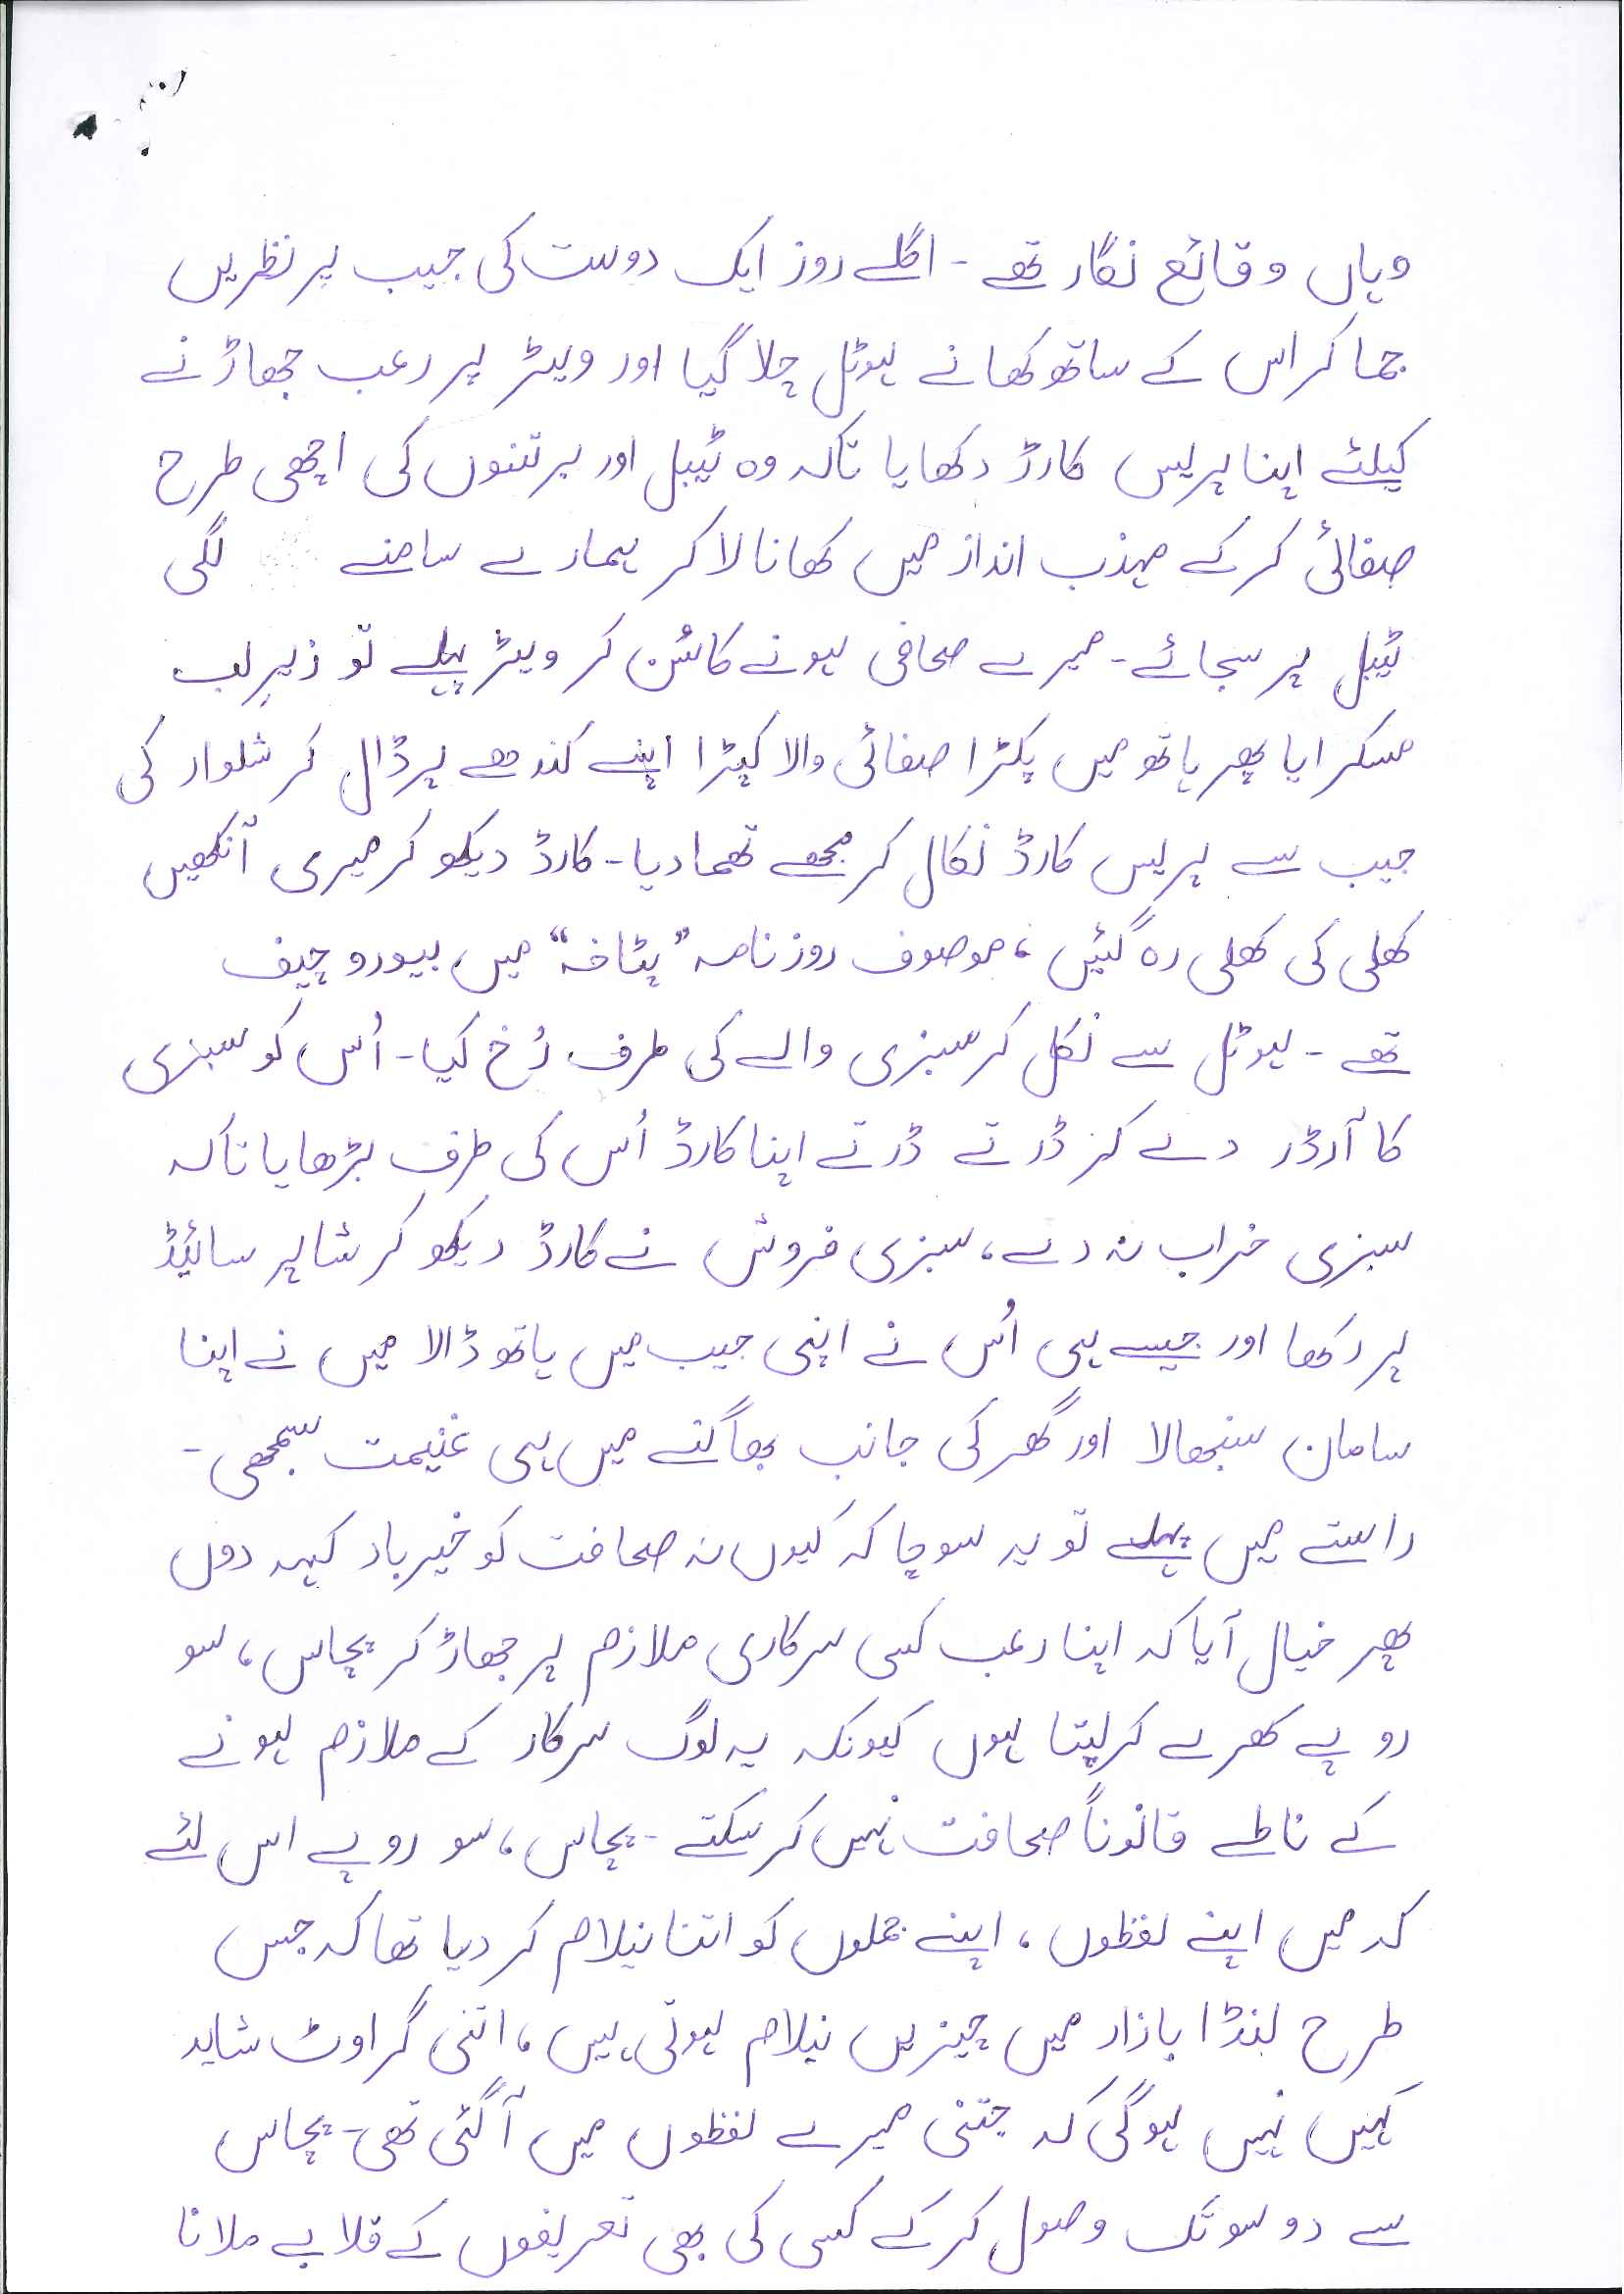 وہاں وقائع نگار تھے - اگلے روز ایک دوست کی جیب پر نظریں
جما کر اس کے ساتھ کھانے ہوٹل چلا گیا اور ویٹر پر رعب جھاڑنے
کیلئے اپنا پریس کارڈ دکھایا تاکہ وہ ٹیبل اور برتنوں کی اچھی طرح
صفائی کر کے مہذب انداز میں کھانا لا کر ہمارے سامنے لگی
ٹیبل پر سجائے - میرے صحافی ہونے کا سُن کر ویٹر پہلے تو زیرِ لب
مسکرایا پھر ہاتھ میں پکڑا صفائی والا کپڑا اپنے کندھے پر ڈال کر شلوار کی
جیب سے پریس کارڈ نکال کر مجھے تھما دیا - کارڈ دیکھ کر میری آنکھیں
کھلی کی کھلی رہ گئیں ، موصوف روزنامہ ”پٹاخہ“ میں بیورو چیف
تھے - ہوٹل سے نکل کر سبزی والے کی طرف رُخ کیا - اُس کو سبزی
کا آرڈر دے کر ڈرتے ڈرتے اپنا کارڈ اُس کی طرف بڑھایا تاکہ
سبزی خراب نہ دے ، سبزی فروش نے کارڈ دیکھ کر شاپر سائیڈ
پر رکھا اور جیسے ہی اُس نے اپنی جیب میں ہاتھ ڈالا میں نے اپنا
سامان سنبھالا اور گھر کی جانب بھاگنے میں ہی غنیمت سمجھی -
راستے میں پہلے تو یہ سوچا کہ کیوں نہ صحافت کو خیرباد کہہ دوں
پھر خیال آیا کہ اپنا رعب کسی سرکاری ملازم پر جھاڑ کر پچاس ، سو
روپے کھرے کر لیتا ہوں کیونکہ یہ لوگ سرکار کے ملازم ہونے
کے ناطے قانوناً صحافت نہیں کر سکتے - پچاس ، سو روپے اس لئے
کہ میں اپنے لفظوں ، اپنے جملوں کو اتنا نیلام کر دیا تھا کہ جس
طرح لنڈا بازار میں چیزیں نیلام ہوتی ہیں ، اتنی گراوٹ شاید
کہیں نہیں ہوگی کہ جتنی میرے لفظوں میں آ گئی تھی - پچاس
سے دو سو تک وصول کر کے کسی کی بھی تعریفوں کے قلابے ملانا